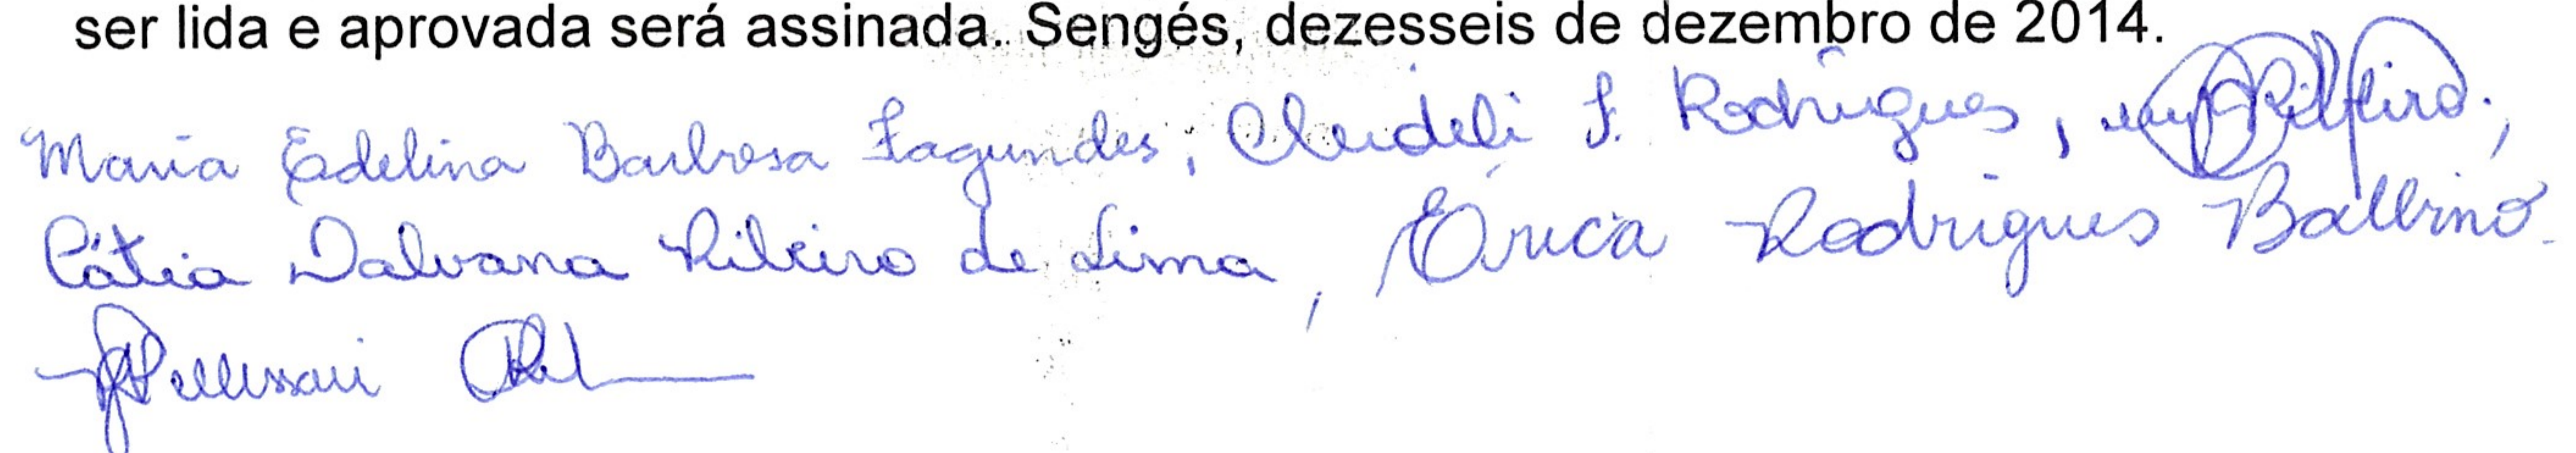 ser lida e aprovada será assinada. Sengés, dezesseis de dezembro de 2014.
Maria Edelina Barbosa Fagundes, Cleideli F. Rodrigues,
Cátia Dalvana Ribeiro de Lima, Érica Rodrigues Balbino.